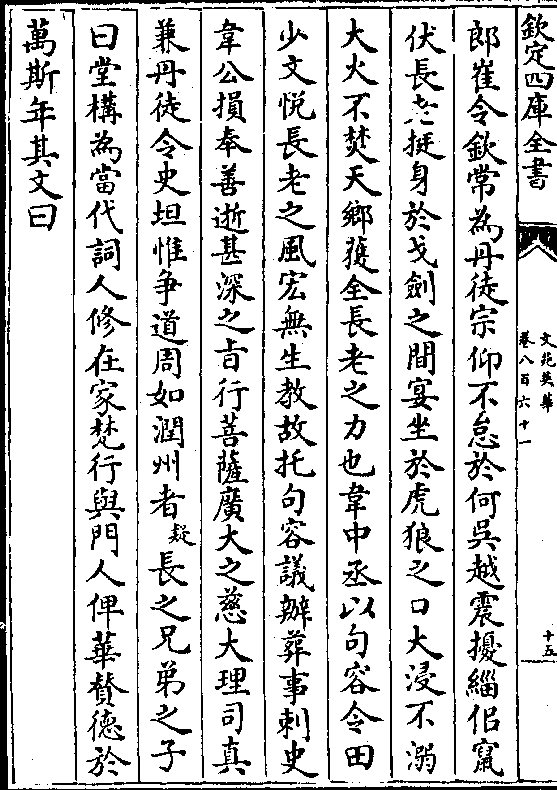 欽定四庫全書
文苑英華
卷八百六十一
十五
郎崔令欽常為丹徒宗仰不怠於何吳越震擾緇侶竄
伏長老挺身於戈劍之間宴坐於虎狼之口大浸不溺
大火不焚天鄉獲全長老之力也韋中丞以句容令田
少文悅長老之風宏無生教故托句容議辦葬事刺史
韋公損奉善逝甚深之㫖行菩薩廣大之慈大理司真
兼丹徒令史坦惟争道周如潤州者疑長之兄弟之子
曰堂構為當代詞人修在家梵行與門人俾華賛德於
萬斯年其文曰